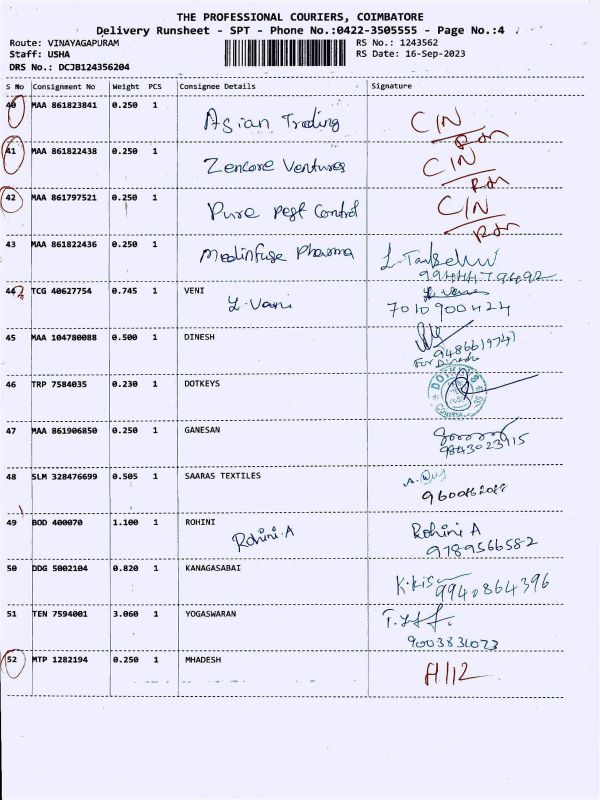 THE PROFESSIONAL COURIERS, COIMBATORE
Delivery Runsheet - SPT - Phone No.:0422-3505555 - Page No.:4
Route: VINAYAGAPURAM RS No.: 1243562
Staff: USHA RS Date: 16-Sep-2023
DRS No.: DCJB124356204
S No Consignment No Weight PCS Consignee Details Signature
40 MAA 861823841 0.250 1 Asian Trading C/N
41 MAA 861822438 0.250 1 Zencore Ventures C/N
42 MAA 861797521 0.250 1 Pure Pest Control C/N
43 MAA 861822436 0.250 1 Medinfuse Pharma
9944479492
44 TCG 40627754 0.745 1 VENI
L. Vani 7010900424
45 MAA 104780088 0.500 1 DINESH
For Dinesh
46 TRP 7584035 0.230 1 DOTKEYS
47 MAA 861906850 0.250 1 GANESAN
9843023915
48 SLM 328476699 0.505 1 SAARAS TEXTILES
49 BOD 400070 1.100 1 ROHINI
Rohini.A Rohini A
9789566582
50 DDG 5002104 0.820 1 KANAGASABAI
9940864396
51 TEN 7594001 3.060 1 YOGASWARAN
52 MTP 1282194 0.250 1 MHADESH